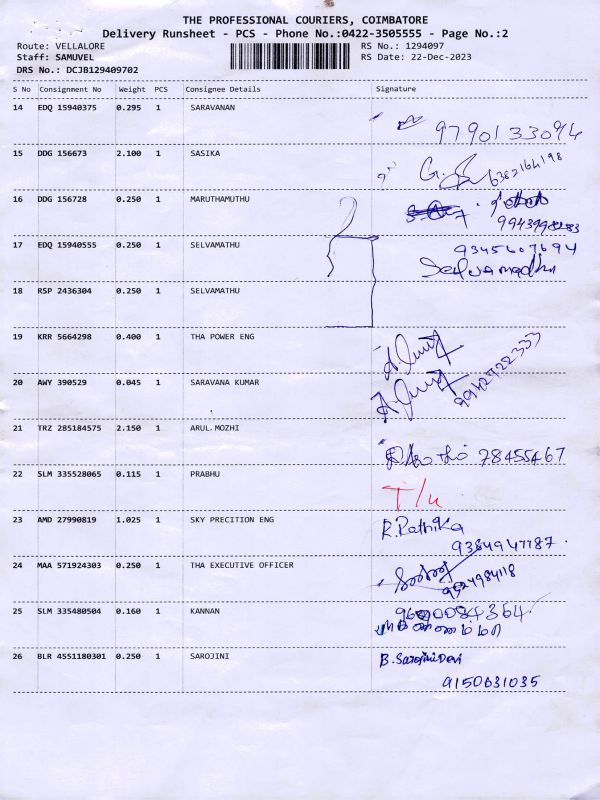 THE PROFESSIONAL COURIERS, COIMBATORE
Delivery Runsheet - PCS - Phone No.:0422-3505555 - Page No.:2
Route: VELLALORE RS No.: 1294097
Staff: SAMUVEL RS Date: 22-Dec-2023
DRS No.: DCJB129409702
S No Consignment No Weight PCS Consignee Details Signature
14 EDQ 15940375 0.295 1 SARAVANAN
9790133094
15 DDG 156673 2.100 1 SASIKA
6382164198
16 DDG 156728 0.250 1 MARUTHAMUTHU
17 EDQ 15940555 0.250 1 SELVAMATHU
9345607694
Selvamadhu
18 RSP 2436304 0.250 1 SELVAMATHU
19 KRR 5664298 0.400 1 THA POWER ENG
20 AWY 390529 0.045 1 SARAVANA KUMAR
9942722333
21 TRZ 285184575 2.150 1 ARUL.MOZHI
78455467
22 SLM 335528065 0.115 1 PRABHU
23 AMD 27990819 1.025 1 SKY PRECITION ENG
R.Rathika
9384947787.
24 MAA 571924303 0.250 1 THA EXECUTIVE OFFICER
9524984118
25 SLM 335480504 0.160 1 KANNAN
26 BLR 4551180301 0.250 1 SAROJINI
B.Sarojini Devi
9150631035